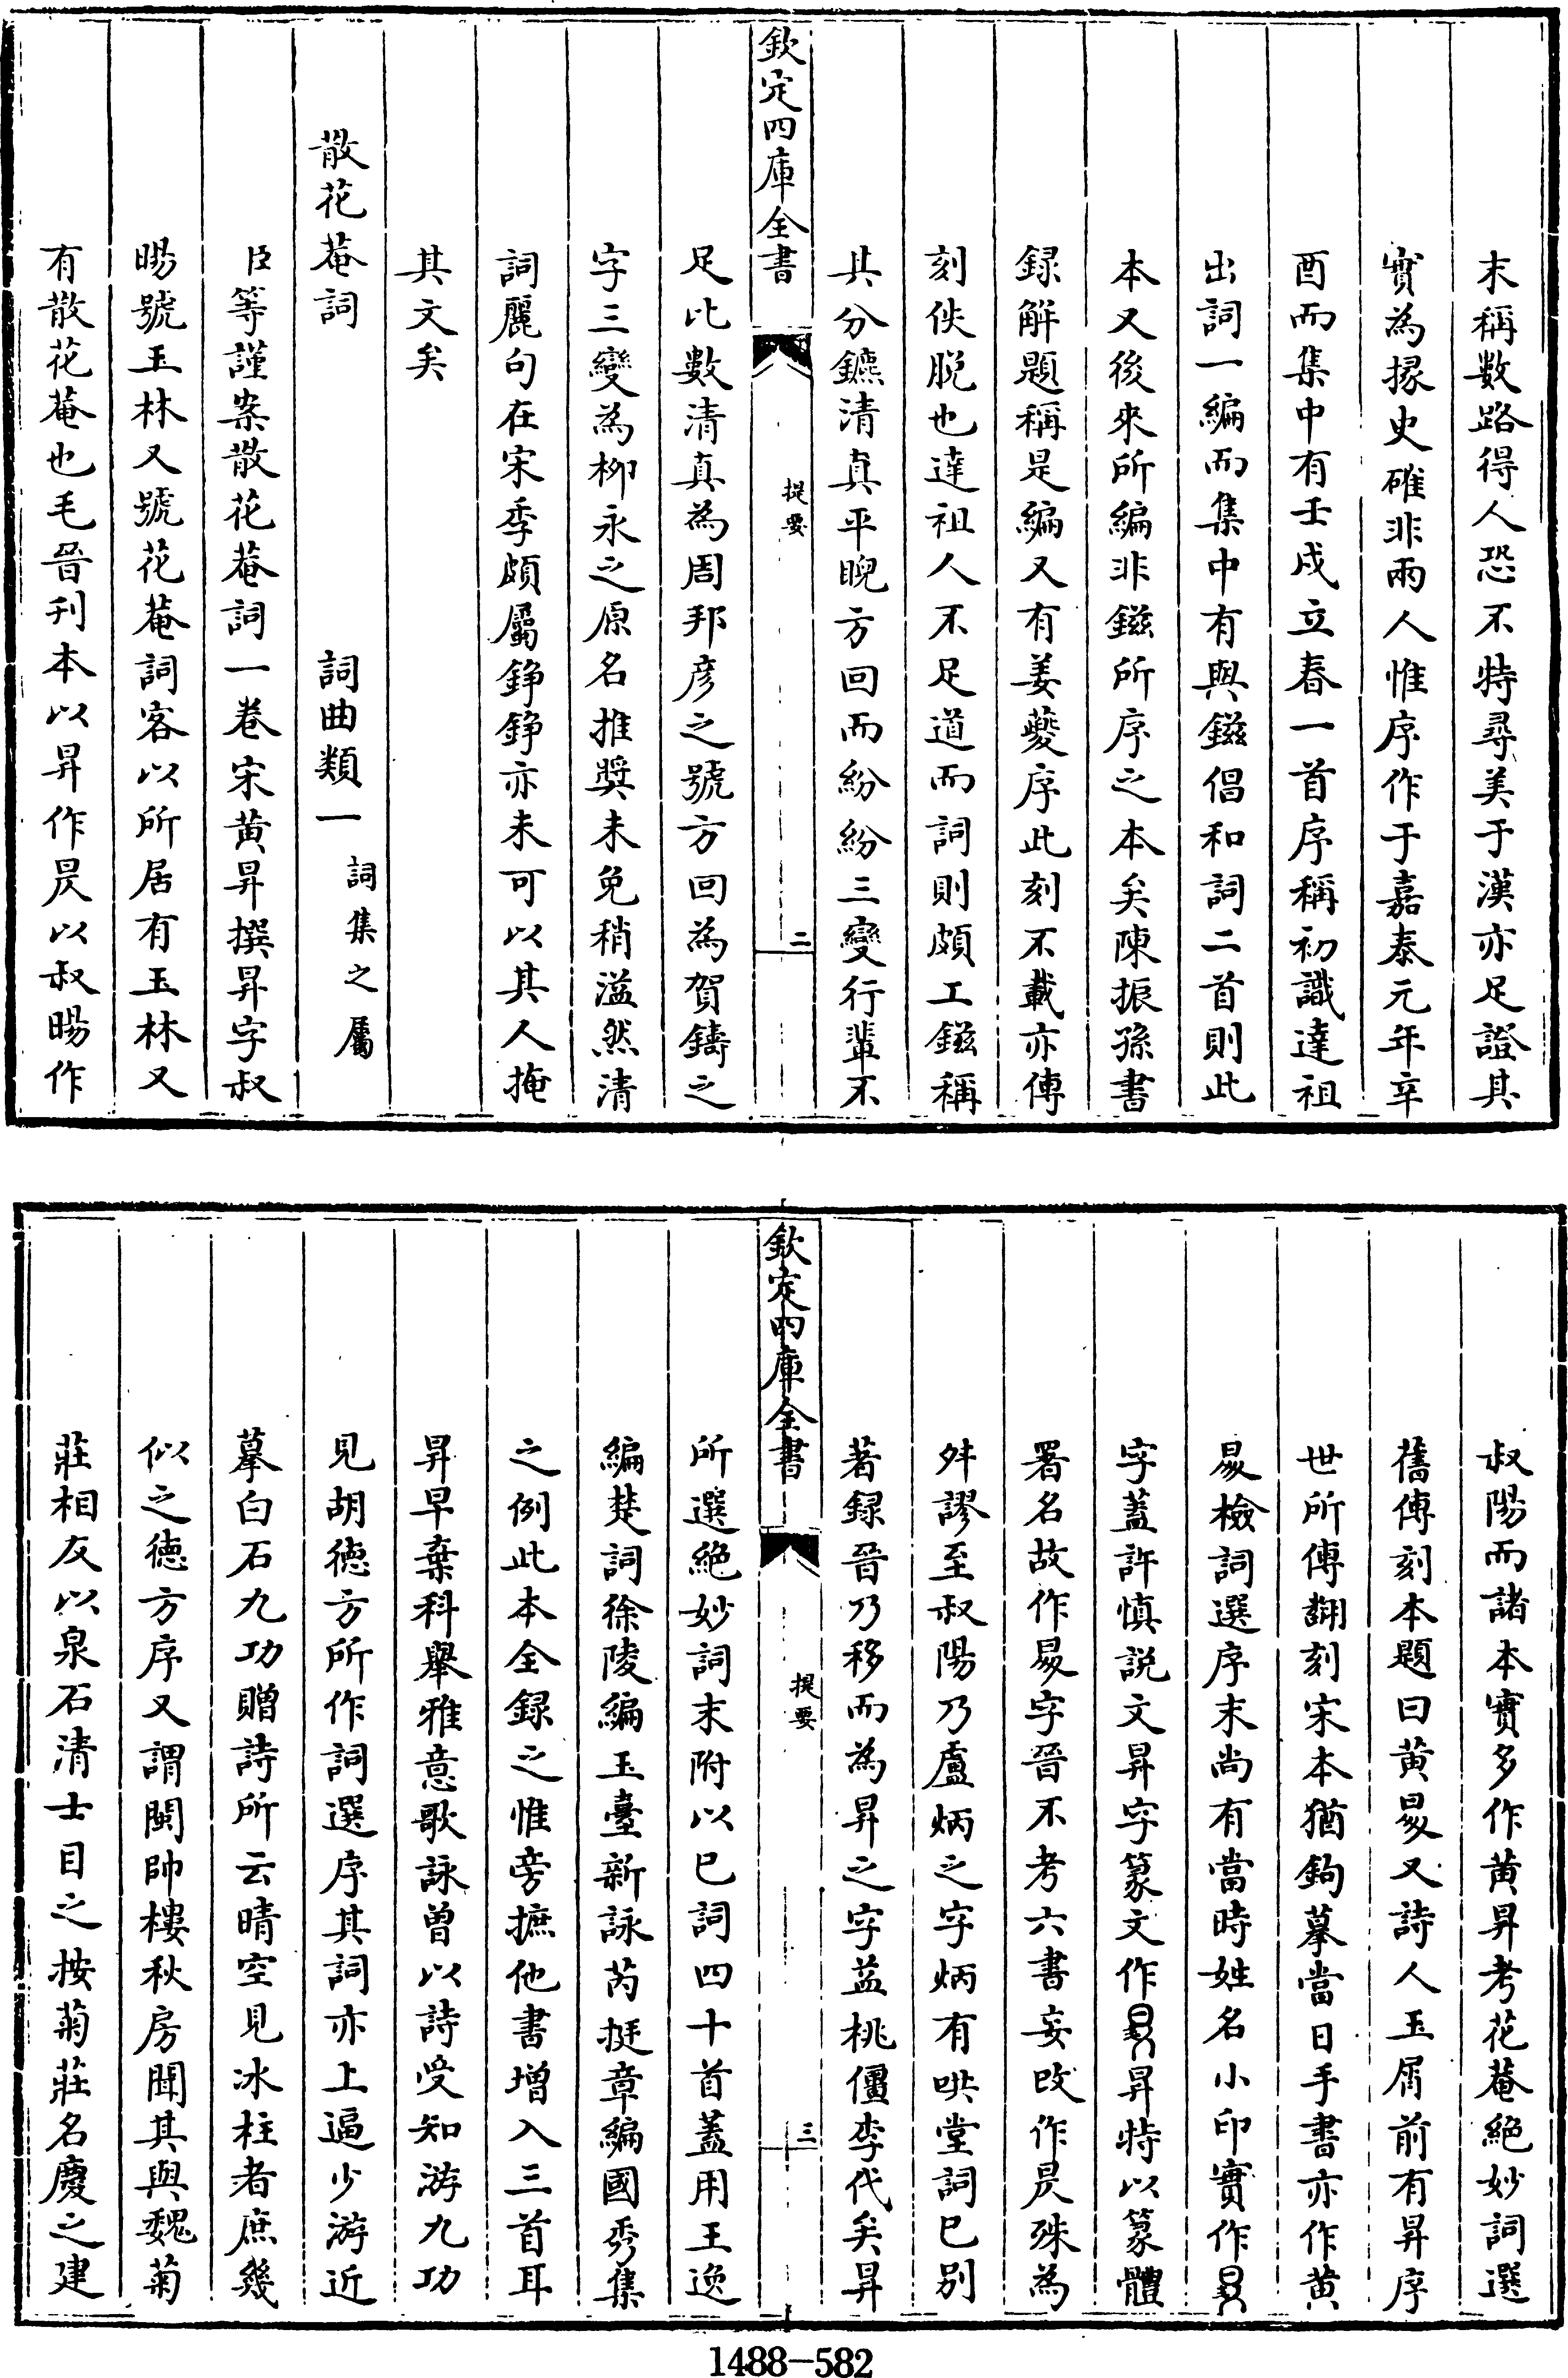 末稱數路得人恐不特尋美于漢亦足證其
實為掾史確非兩人惟序作于嘉泰元年辛
酉而集中有壬戌立春一首序稱初識達祖
出詞一編而集中有與鎡倡和詞二首則此
本又後來所編非鎡所序之本矣陳振孫書
録解題稱是編又有姜夔序此刻不載亦傳
刻佚脱也達祖人不足道而詞則頗工鎡稱
其分鑣清真平睨方回而紛紛三變行輩不
欽定四庫全書
提要
二
足比數清真為周邦彦之號方回為賀鑄之
字三變為栁永之原名推奨未免稍溢然清
詞麗句在宋季頗屬錚錚亦未可以其人掩
其文矣
散花菴詞 詞曲類一 詞集之屬
臣等謹案散花菴詞一卷宋黄昇撰昇字叔
暘號玉林又號花菴詞客以所居有玉林又
有散花菴也毛晉刋本以昇作昃以叔暘作
叔陽而諸本實多作黄昇考花菴絶妙詞選
舊傳刻本題曰黄昜又詩人玉屑前有昇序
世所傳翻刻宋本猶鉤摹當日手書亦作黄
昜檢詞選序末尚有當時姓名小印實作𣅈
字蓋許慎説文昇字篆文作𣅈昇特以篆體
署名故作昜字晉不考六書妄改作昃殊為
舛謬至叔陽乃盧炳之字炳有哄堂詞已别
著録晉乃移而為昇之字益桃僵李代矣昇
欽定四庫全書
提要
三
所選絶妙詞末附以已詞四十首蓋用王逸
編楚詞徐陵編玉臺新詠芮挺章編國秀集
之例此本全録之惟旁摭他書増入三首耳
昇早棄科舉雅意歌詠曾以詩受知游九功
見胡徳方所作詞選序其詞亦上逼少游近
摹白石九功贈詩所云晴空見冰柱者庶幾
似之徳方序又謂閩帥樓秋房聞其與魏菊
莊相友以泉石清士目之按菊莊名慶之建
1488-582